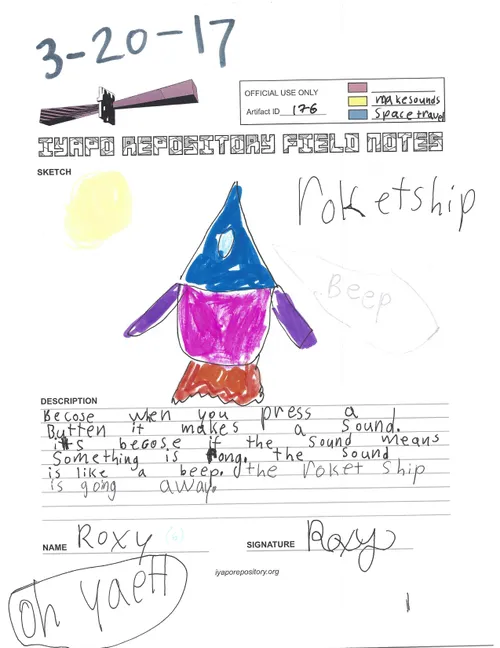 3-20-17
OFFICIAL USE ONLY
Artifact ID 176
makesounds
Space travel
IYAPO REPOSITORY FIELD NOTES
SKETCH
roketship
Beep
DESCRIPTION
Becose when you press a
Butten it makes a sound.
its becose if the sound means
Something is rong. the sound
is like a beep. the roket ship
is gong away.
NAME Roxy (6)
SIGNATURE Roxy
iyaporepository.org
oh yaeH